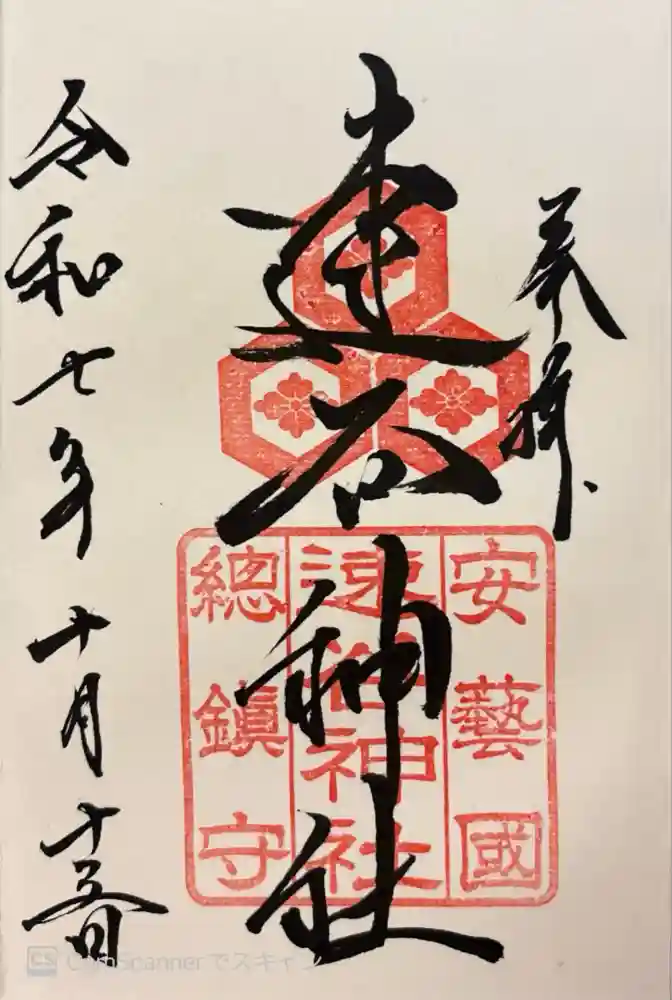 奉拝
速谷神社
安藝國
速谷神社
總鎮守
令和七年十月十五日
CS CamScannerでスキャン